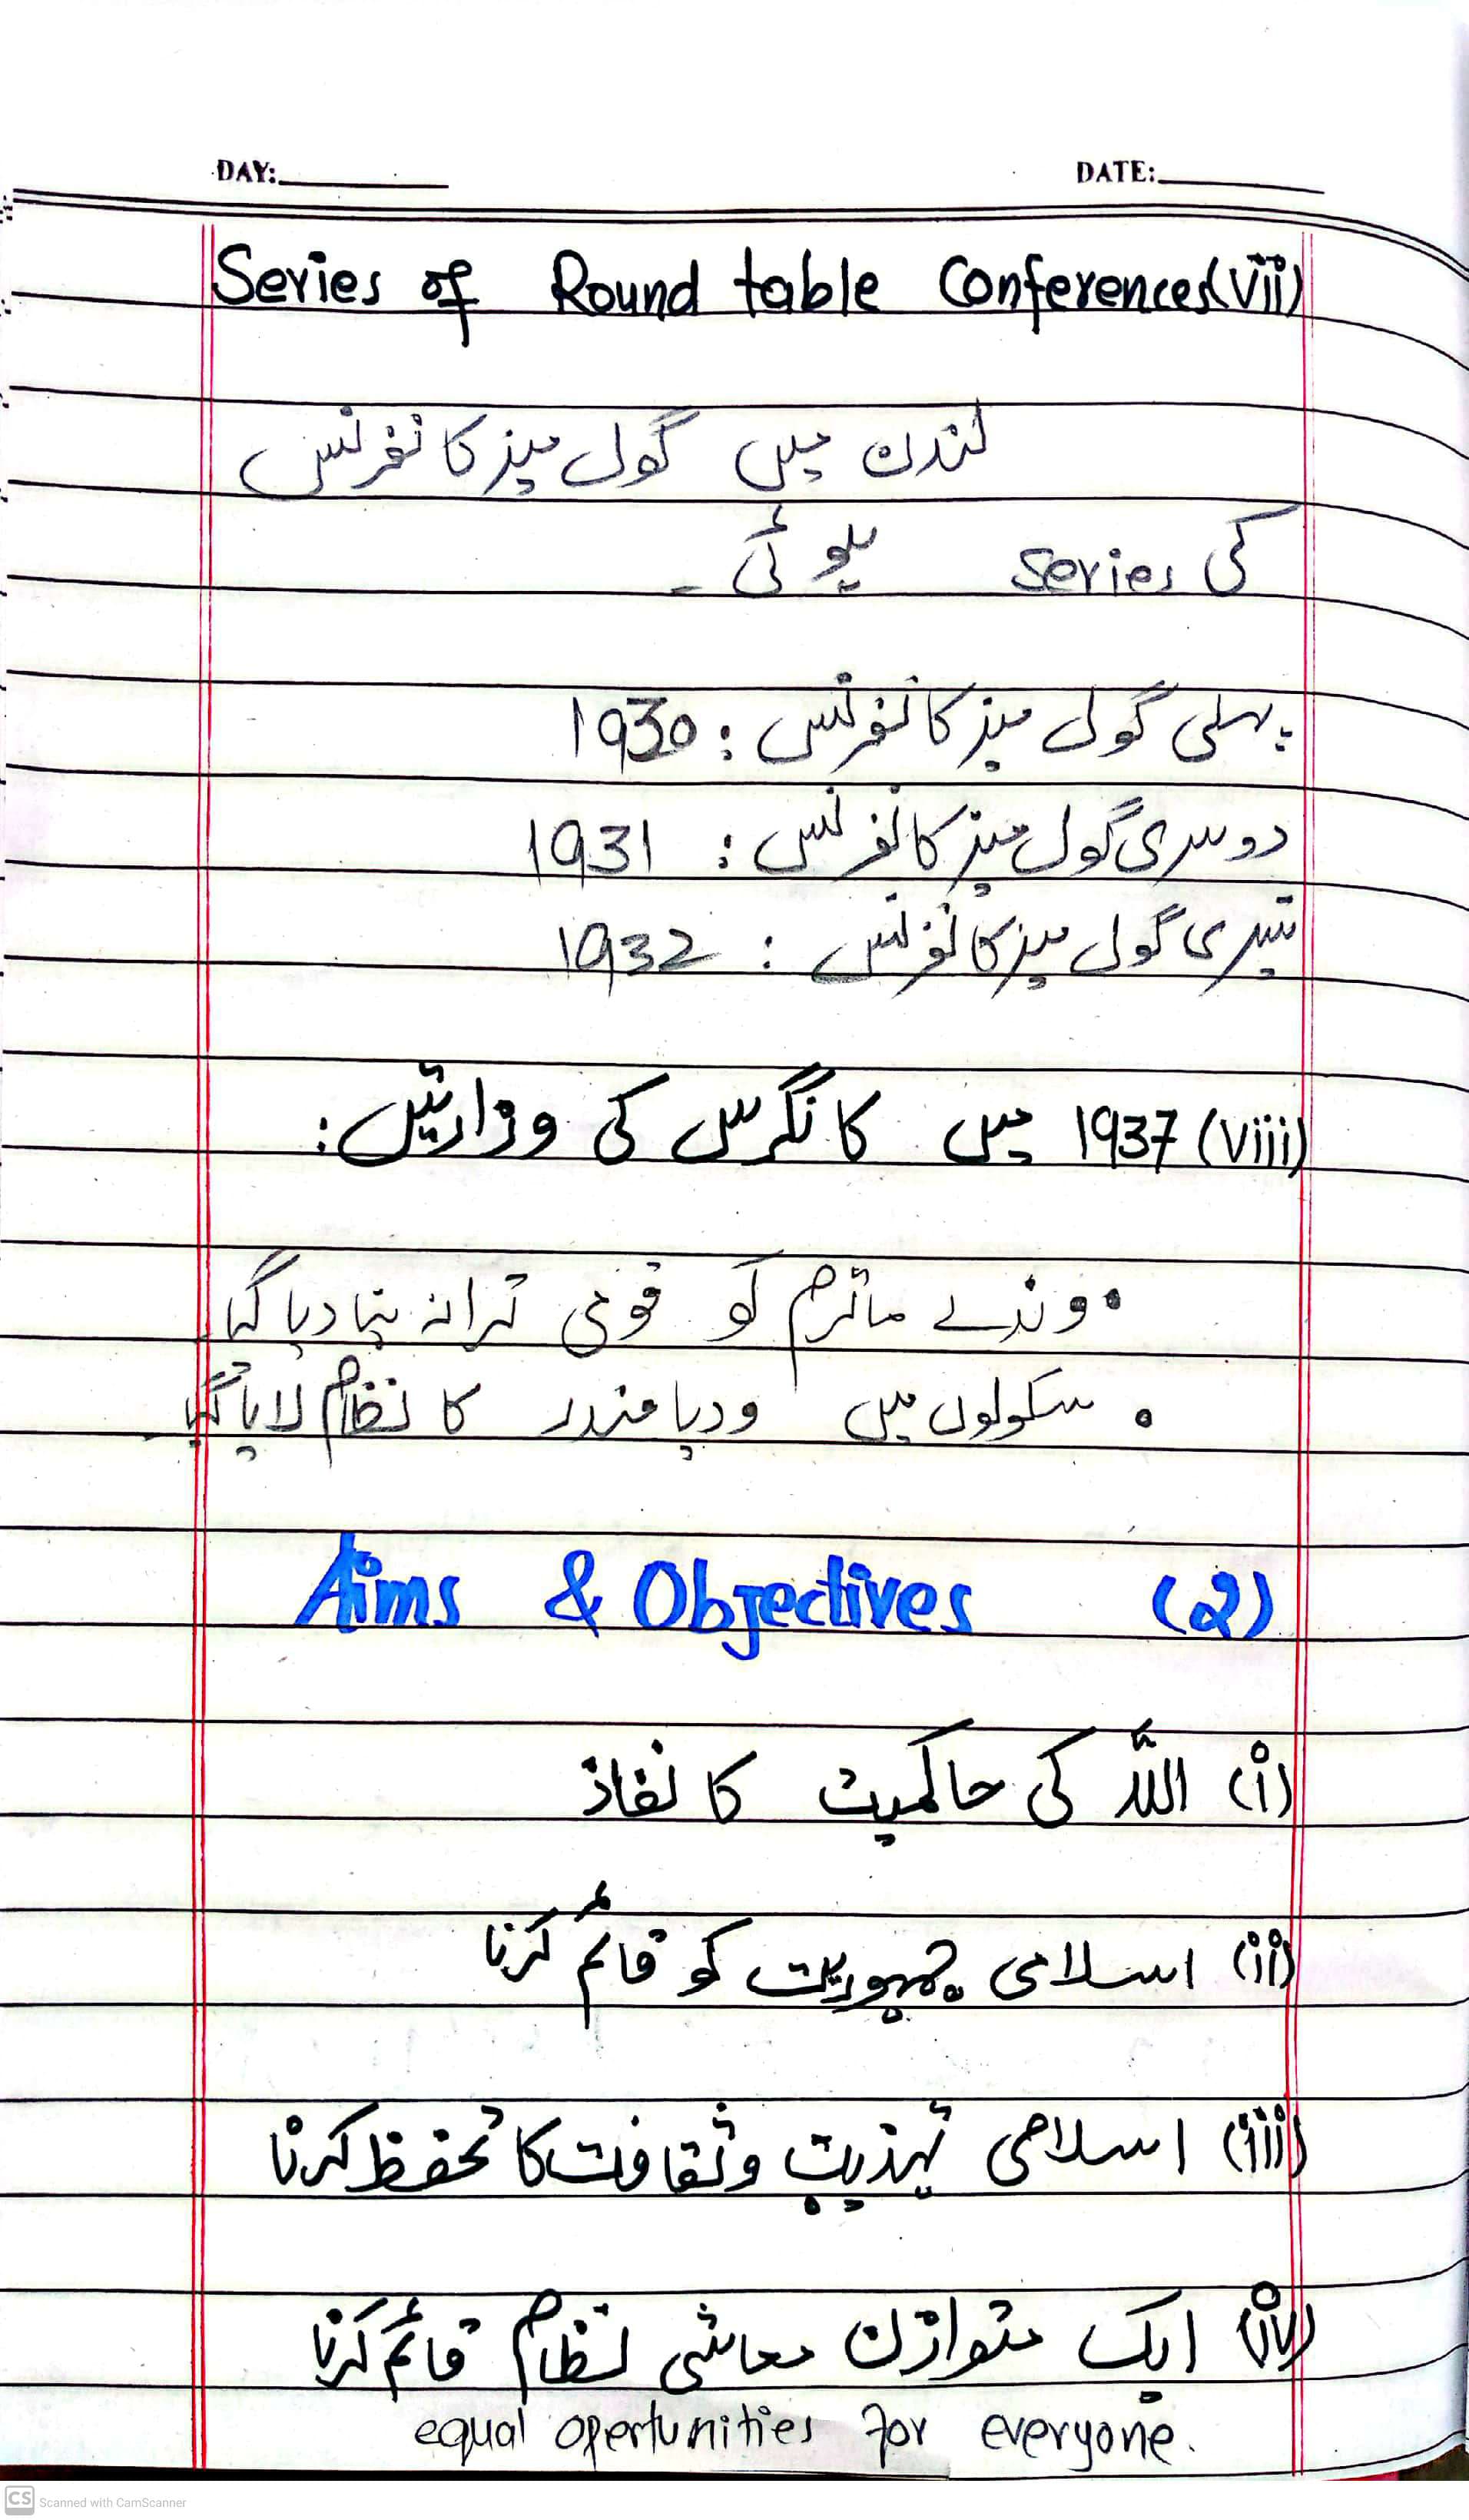 DAY: DATE:
Series of Round table Conferences (vii)
لندن میں گول میز کانفرنس
کی Series ہوئی۔
پہلی گول میز کانفرنس : 1930
دوسری گول میز کانفرنس : 1931
تیسری گول میز کانفرنس : 1932
(viii) 1937 میں کانگرس کی وزارتیں :
• وندے ماترم کو قومی ترانہ بنا دیا گیا
• سکولوں میں ودیا مندر کا نظام لایا گیا۔
Aims & Objectives (2)
(i) اللہ کی حاکمیت کا نفاذ
(ii) اسلامی جمہوریت کو قائم کرنا
(iii) اسلامی تہذیب و ثقافت کا تحفظ کرنا
(iv) ایک متوازن معاشی نظام قائم کرنا
equal opertunities for everyone.
CS Scanned with CamScanner